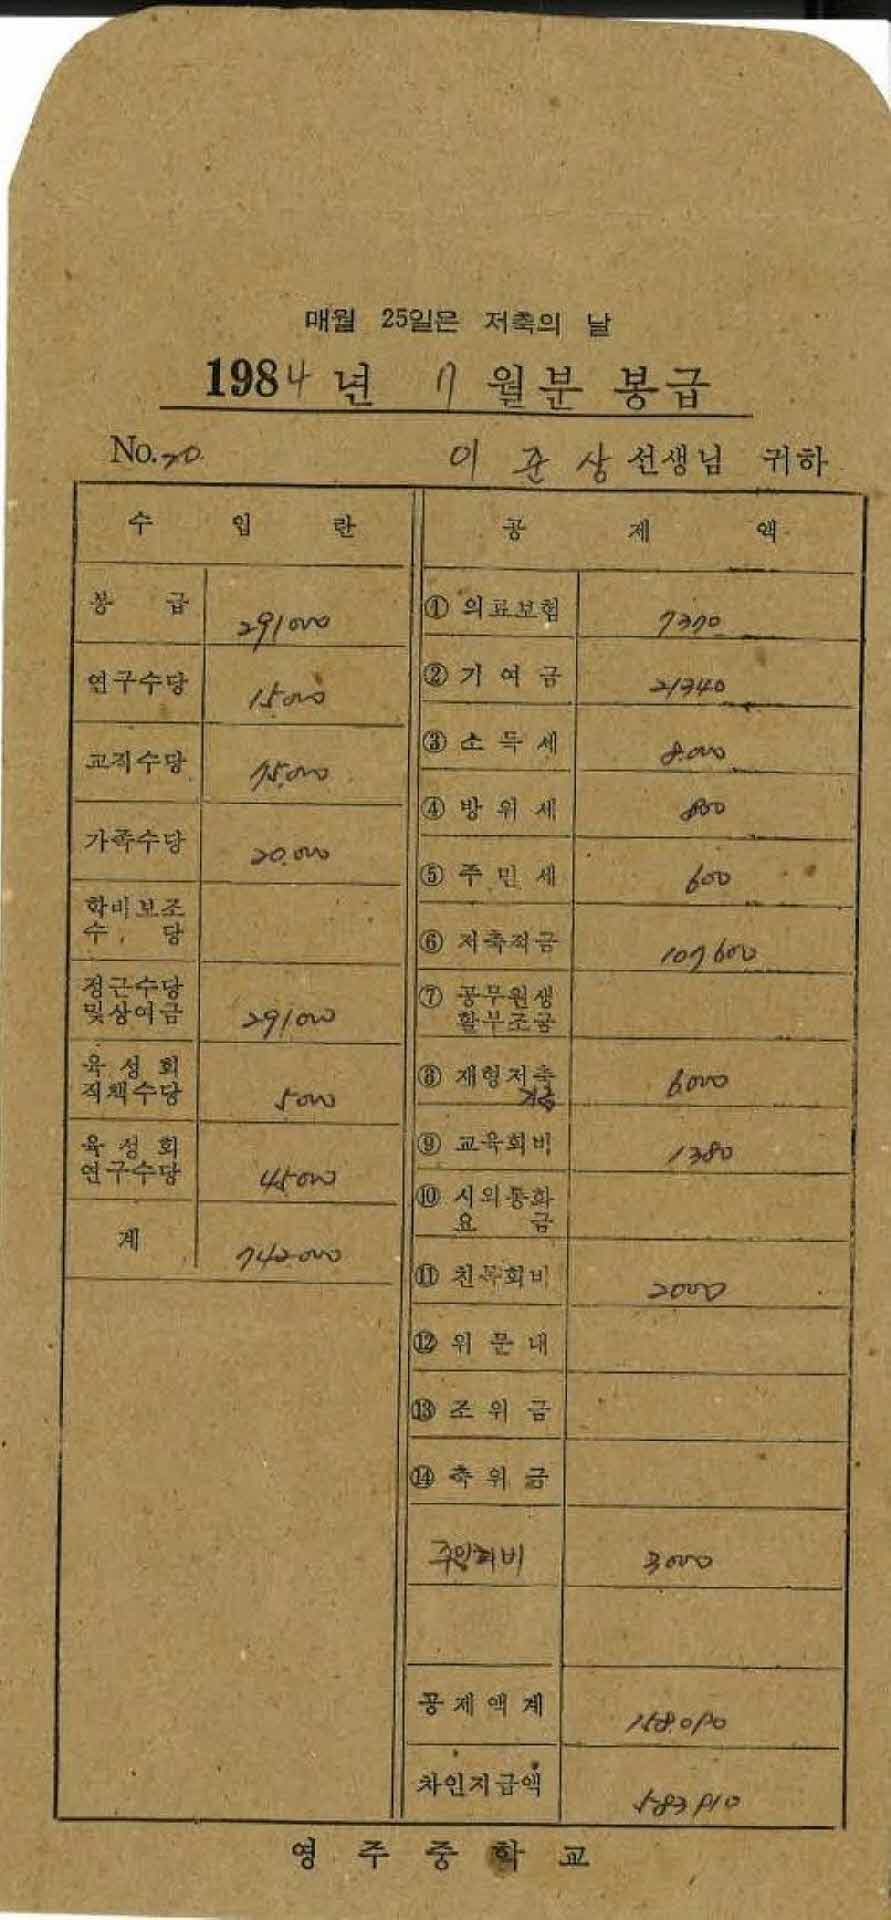 매월 25일은 저축의 날
1984년 7월분 봉급
No. 20 이준상 선생님 귀하
수 입 란 공 제 액
봉 급 291000
연구수당 15.000
교직수당 75.000
가족수당 20.000
학비보조
수 당
정근수당
및상여금 291000
육 성 회
직책수당 5000
육 성 회
연구수당 45000
계 742000
① 의료보험 7370
② 기 여 금 21340
③ 소 득 세 8.000
④ 방 위 세 800
⑤ 주 민 세 600
⑥ 저축적금 107600
⑦ 공무원생
활부조금
⑧ 재형저축 6000
⑨ 교육회비 1380
⑩ 시외통화
요 금
⑪ 친목회비 2000
⑫ 위 문 대
⑬ 조 위 금
⑭ 축 위 금
3000
공 제 액 계 158.090
차인지급액 583910
영 주 중 학 교